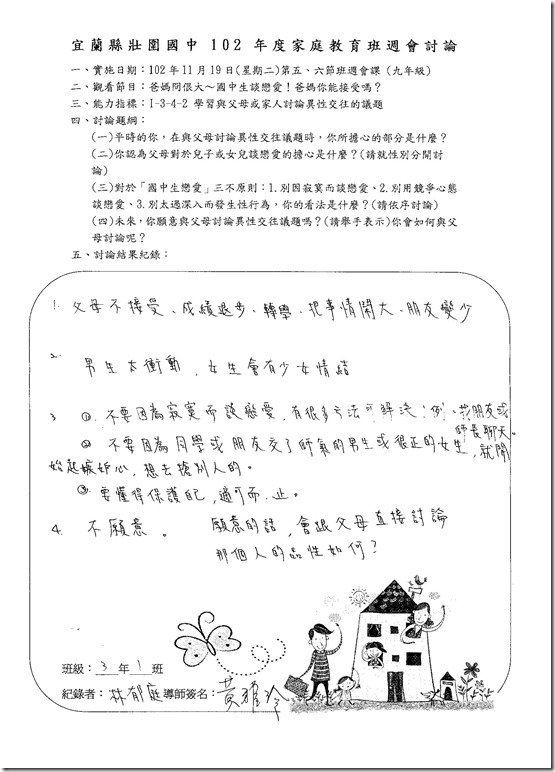 宜蘭縣壯圍國中 102 年度家庭教育班週會討論
一、實施日期：102 年 11 月 19 日(星期二)第五、六節班週會課 (九年級)
二、觀看節目：爸媽冏很大～國中生談戀愛！爸媽你能接受嗎？
三、能力指標：I-3-4-2 學習與父母或家人討論異性交往的議題
四、討論題綱：
(一)平時的你，在與父母討論異性交往議題時，你所擔心的部分是什麼？
(二)你認為父母對於兒子或女兒談戀愛的擔心是什麼？(請就性別分開討
論)
(三)對於「國中生戀愛」三不原則：1.別因寂寞而談戀愛、2.別用競爭心態
談戀愛、3.別太過深入而發生性行為，你的看法是什麼？(請依序討論)
(四)未來，你願意與父母討論異性交往議題嗎？(請舉手表示)你會如何與父
母討論呢？
五、討論結果紀錄：
1. 父母不接受、成績退步、轉學、把事情鬧大、朋友變少
2. 男生太衝動，女生會有少女情結
3 ①.不要因為寂寞而談戀愛，有很多方法可解決！例、找朋友或
師長聊天。
② 不要因為同學或朋友交了帥氣的男生或很正的女生，就開
始起嫉妒心，想去搶別人的。
③.要懂得保護自己，適可而止。
4. 不願意。 願意的話，會跟父母直接討論
那個人的品性如何？
班級：3 年 1 班
紀錄者：林郁庭導師簽名：黃雅玲